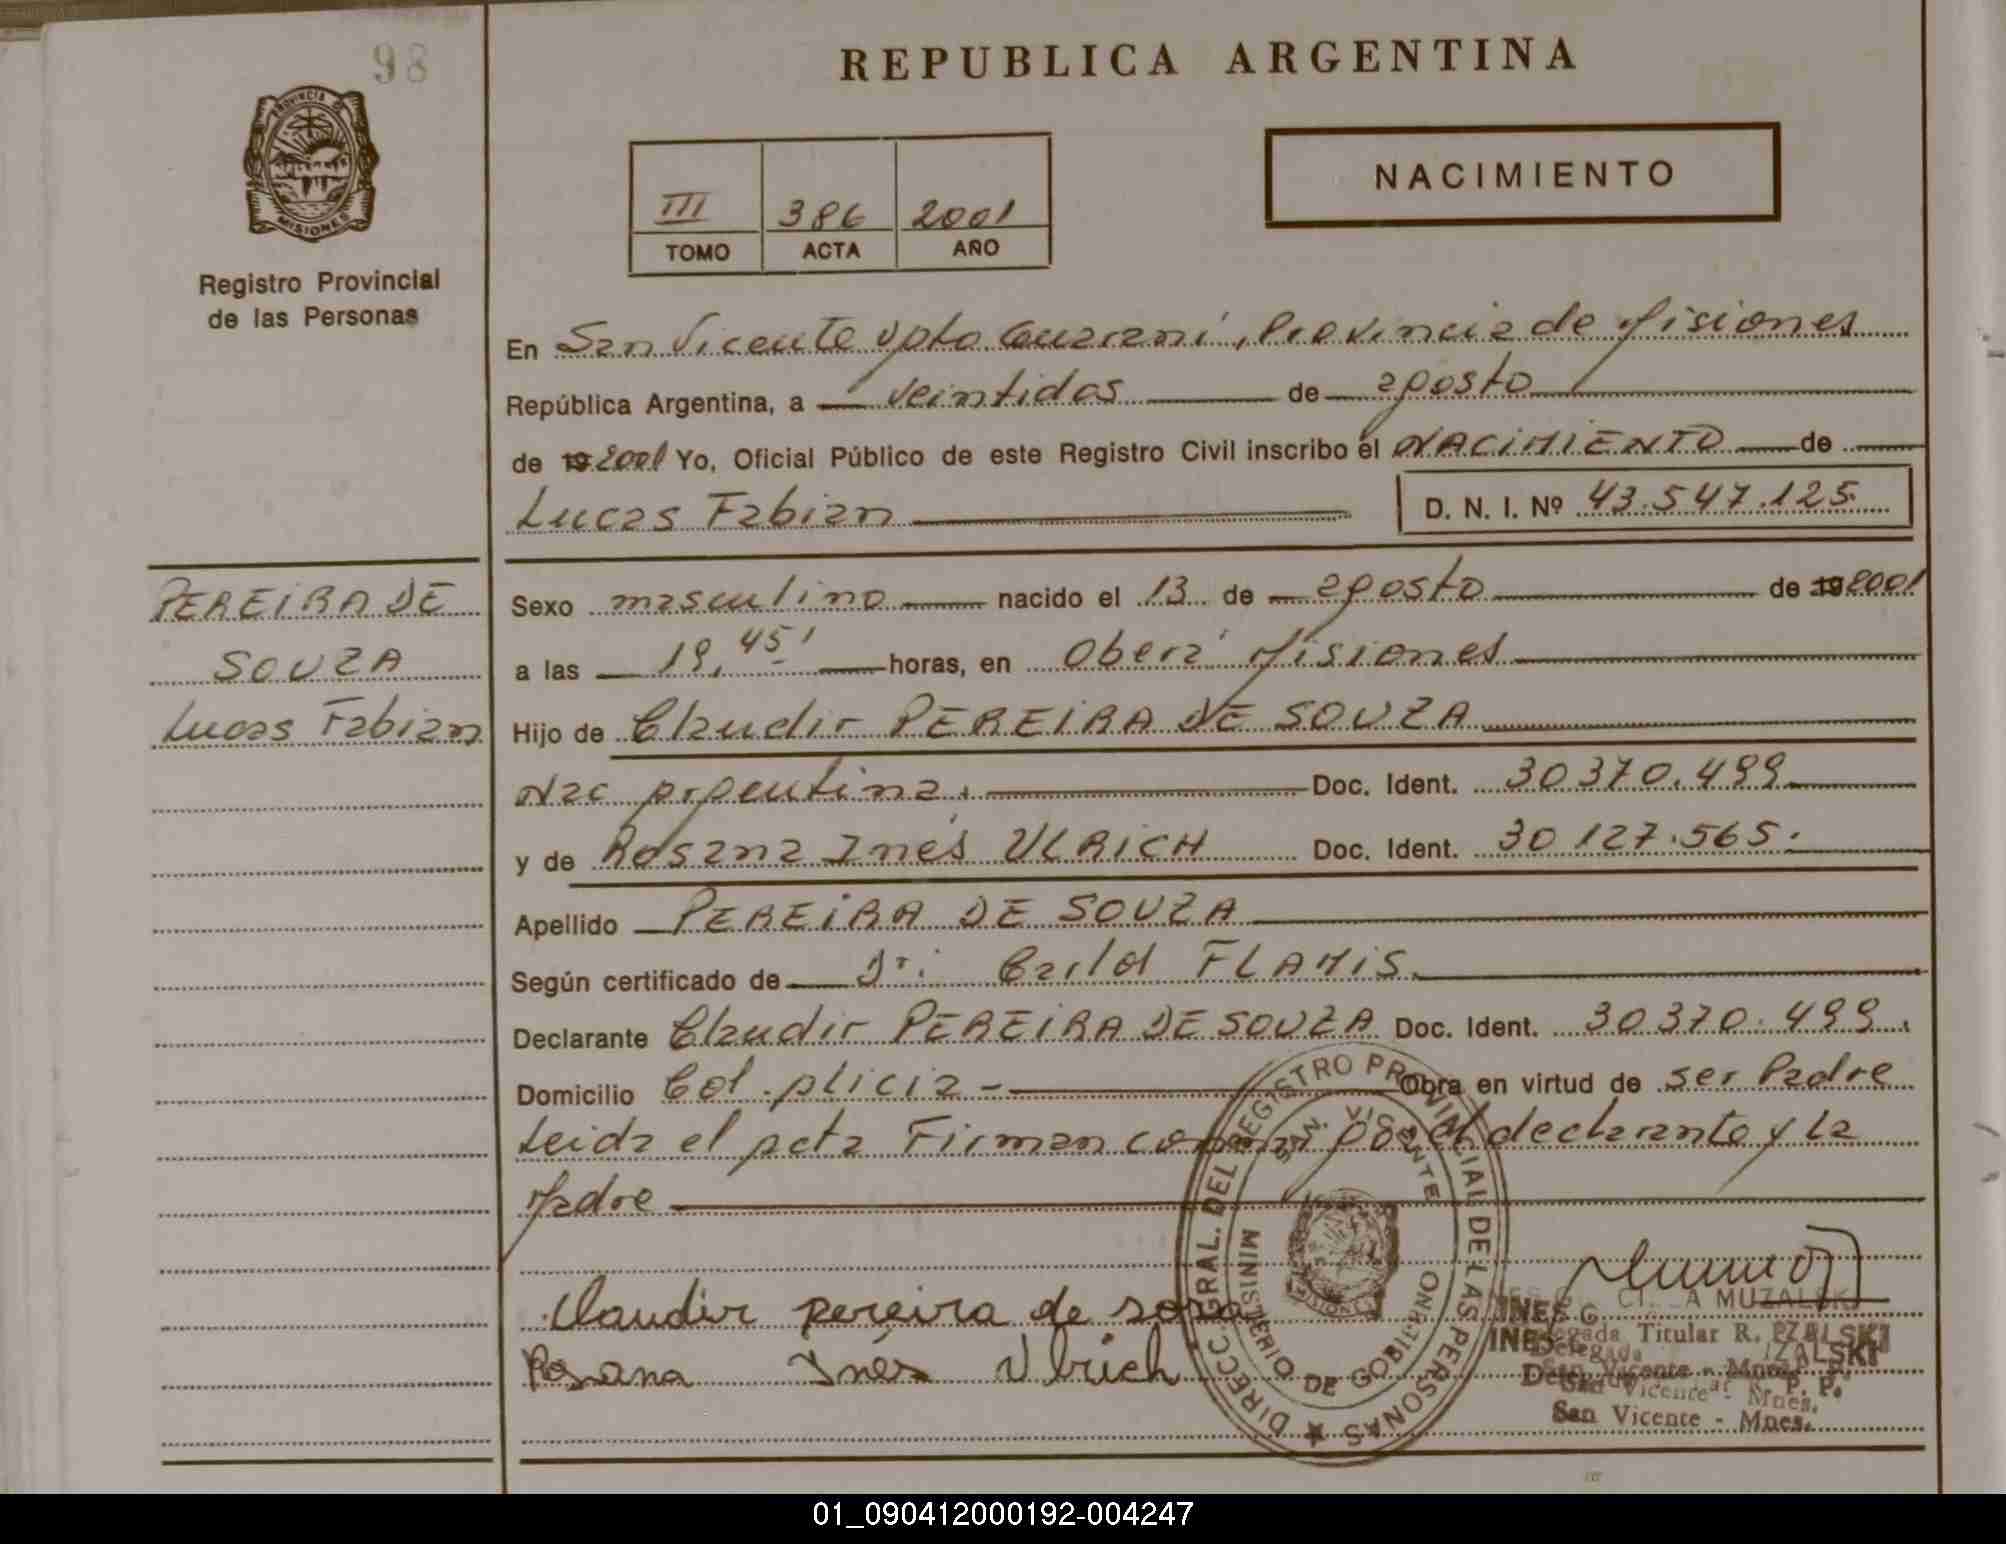 98
REPUBLICA ARGENTINA
PROVINCIA DE MISIONES
Registro Provincial
de las Personas
III 386 2001
TOMO ACTA AÑO
NACIMIENTO
En San Vicente Dpto Guaraní, Provincia de Misiones
República Argentina, a veintidos de agosto
de 19 2001 Yo, Oficial Público de este Registro Civil inscribo el NACIMIENTO de
Lucas Fabian D. N. I. Nº 43.547.125.
PEREIRA DE
SOUZA
Lucas Fabian
Sexo masculino nacido el 13 de agosto de 19 2001
a las 19,45' horas, en Oberá Misiones
Hijo de Claudir PEREIRA DE SOUZA
Nac Argentina. Doc. Ident. 30370.499
y de Rosana Inés ULRICH Doc. Ident. 30127.565.
Apellido PEREIRA DE SOUZA
Según certificado de Dr. FLAMIS
Declarante Claudir PEREIRA DE SOUZA Doc. Ident. 30370.499.
Domicilio Col. Alicia - Obra en virtud de ser Padre
Leida el Acta Firman el declarante y La
Madre
Claudir pereira de soza
Rosana Inés Ulrich
DIRECC. GRAL. DEL REGISTRO PROVINCIAL DE LAS PERSONAS
SAN VICENTE
MINISTERIO DE GOBIERNO
MISIONES
INES G. MUZALSKI
Delegada Titular R. P. P.
San Vicente - Mnes.
01_090412000192-004247